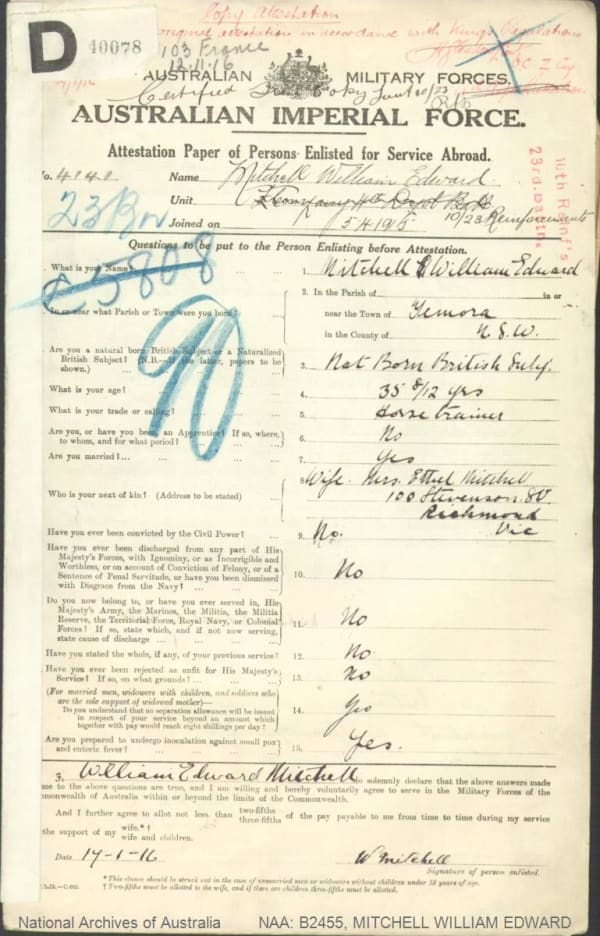 Copy Attestation
original attestation in accordance with Kings Regulations
D 40078
103 France
12.11.16
AUSTRALIAN MILITARY FORCES.
Certified True Copy
AUSTRALIAN IMPERIAL FORCE.
Attestation Paper of Persons Enlisted for Service Abroad.
No. 4840 Name Mitchell William Edward
23 Bn
Unit
10/23 Reinforcements
Joined on
10th Reinf's
23rd Battn.
Questions to be put to the Person Enlisting before Attestation.
What is your Name? 1. Mitchell William Edward
C5808
In or near what Parish or Town were you born? 2. In the Parish of in or
near the Town of Temora
in the County of N.S.W.
90
Are you a natural born British Subject or a Naturalized
British Subject? (N.B.—If the latter, papers to be
shown.) 3. Nat Born British Subj.
What is your age? 4. 35 8/12 yrs
What is your trade or calling? 5. Horse trainer
Are you, or have you been an Apprentice? If so, where,
to whom, and for what period? 6. No
Are you married? 7. Yes
Who is your next of kin? (Address to be stated) 8. Wife. Mrs. Ethel Mitchell
100 Stevenson St
Richmond
Vic
Have you ever been convicted by the Civil Power? 9. No.
Have you ever been discharged from any part of His
Majesty's Forces, with Ignominy, or as Incorrigible and
Worthless, or on account of Conviction of Felony, or of a
Sentence of Penal Servitude, or have you been dismissed
with Disgrace from the Navy? 10. No
Do you now belong to, or have you ever served in, His
Majesty's Army, the Marines, the Militia, the Militia
Reserve, the Territorial Force, Royal Navy, or Colonial
Forces? If so, state which, and if not now serving,
state cause of discharge 11. No
Have you stated the whole, if any, of your previous service? 12. No
Have you ever been rejected as unfit for His Majesty's
Service? If so, on what grounds? 13. No
(For married men, widowers with children, and soldiers who
are the sole support of widowed mother)—
Do you understand that no separation allowance will be issued
in respect of your service beyond an amount which
together with pay would reach eight shillings per day? 14. Yes
Are you prepared to undergo inoculation against small pox
and enteric fever? 15. Yes.
3, William Edward Mitchell do solemnly declare that the above answers made
me to the above questions are true, and I am willing and hereby voluntarily agree to serve in the Military Forces of the
monwealth of Australia within or beyond the limits of the Commonwealth.
And I further agree to allot not less than two-fifths three-fifths of the pay payable to me from time to time during my service
the support of my wife.*† wife and children.
Date 17-1-16 W Mitchell
Signature of person enlisted.
* This clause should be struck out in the case of unmarried men or widowers without children under 18 years of age.
† Two-fifths must be allotted to the wife, and if there are children three-fifths must be allotted.
National Archives of Australia NAA: B2455, MITCHELL WILLIAM EDWARD